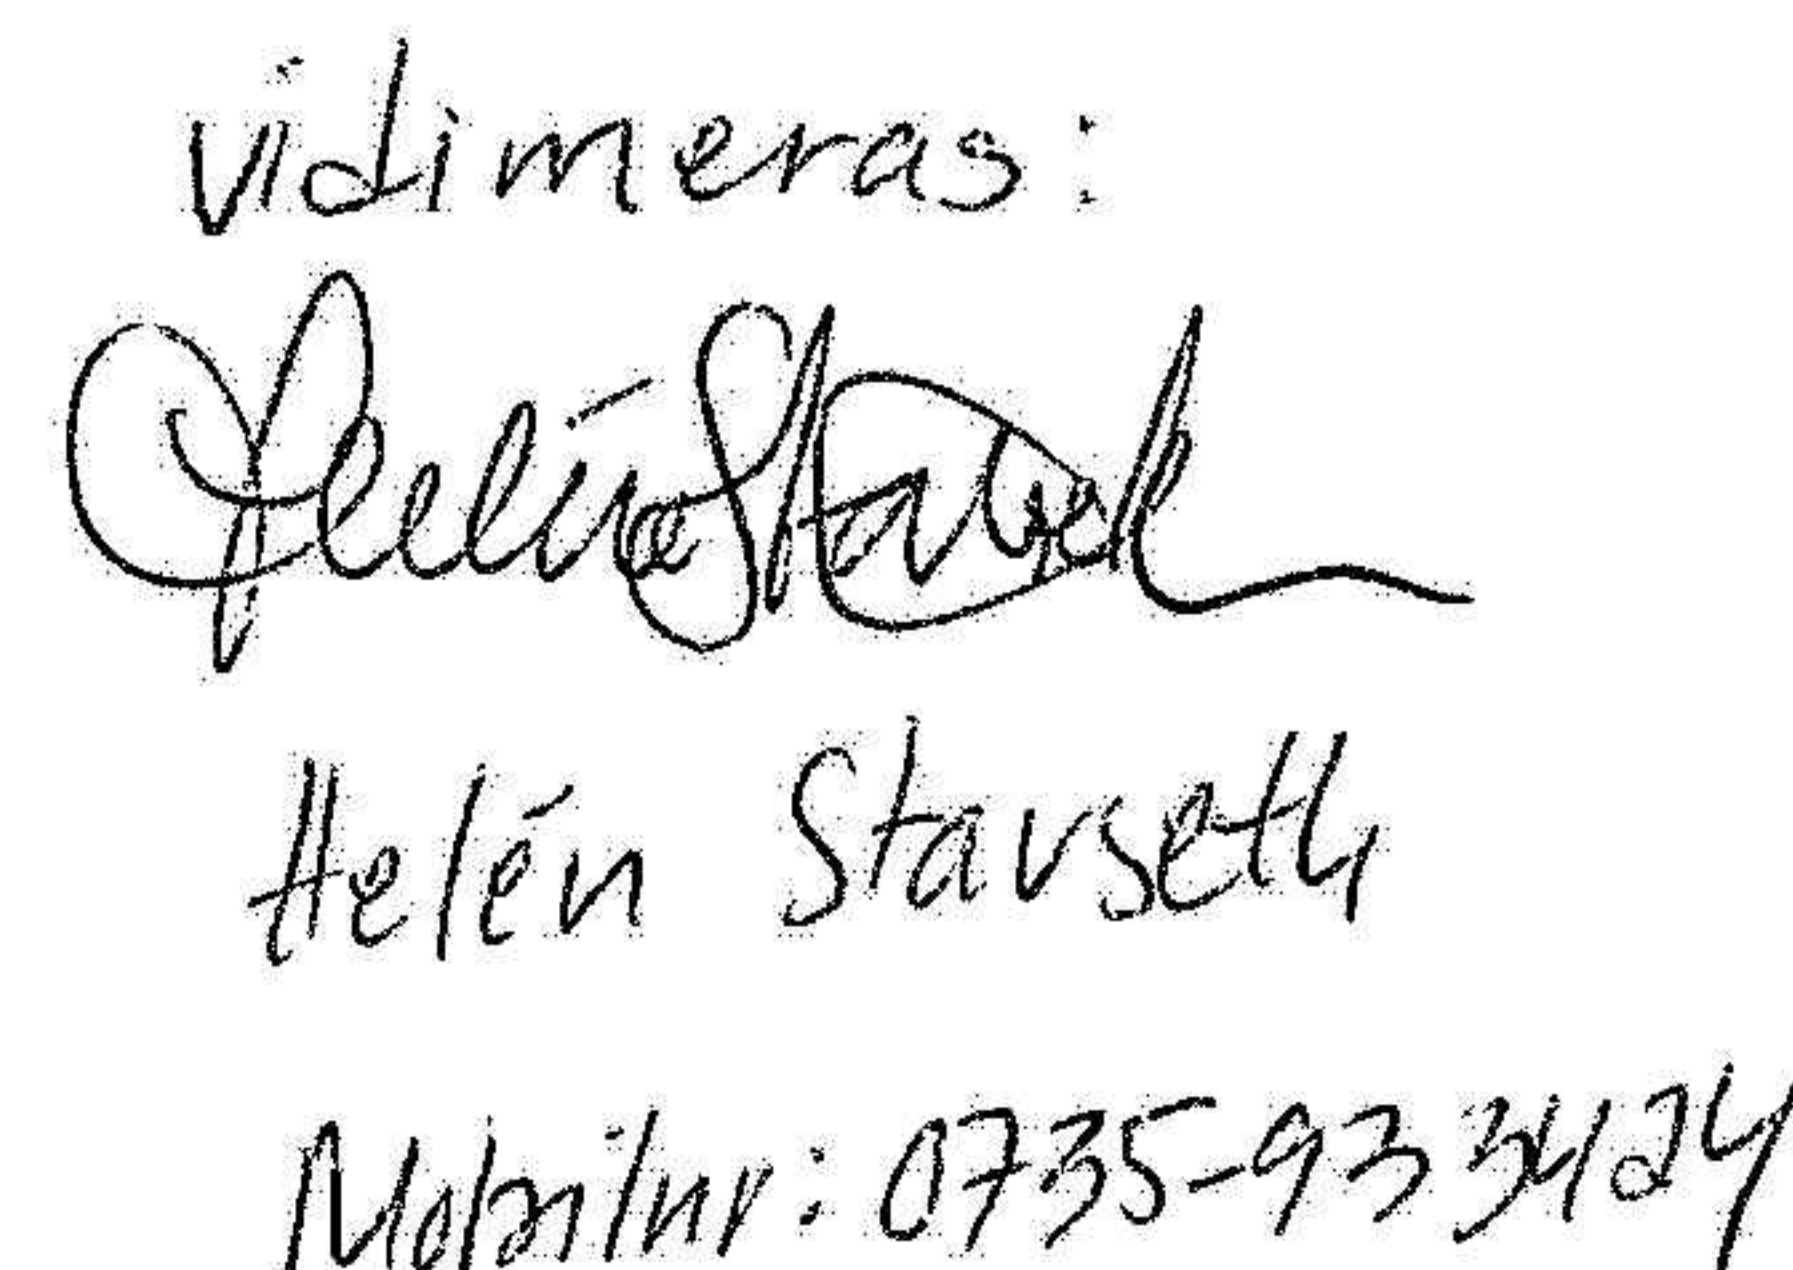 vidimeras:
Helén Stavseth
Helén Stavseth
Mobilnr: 0735-933424